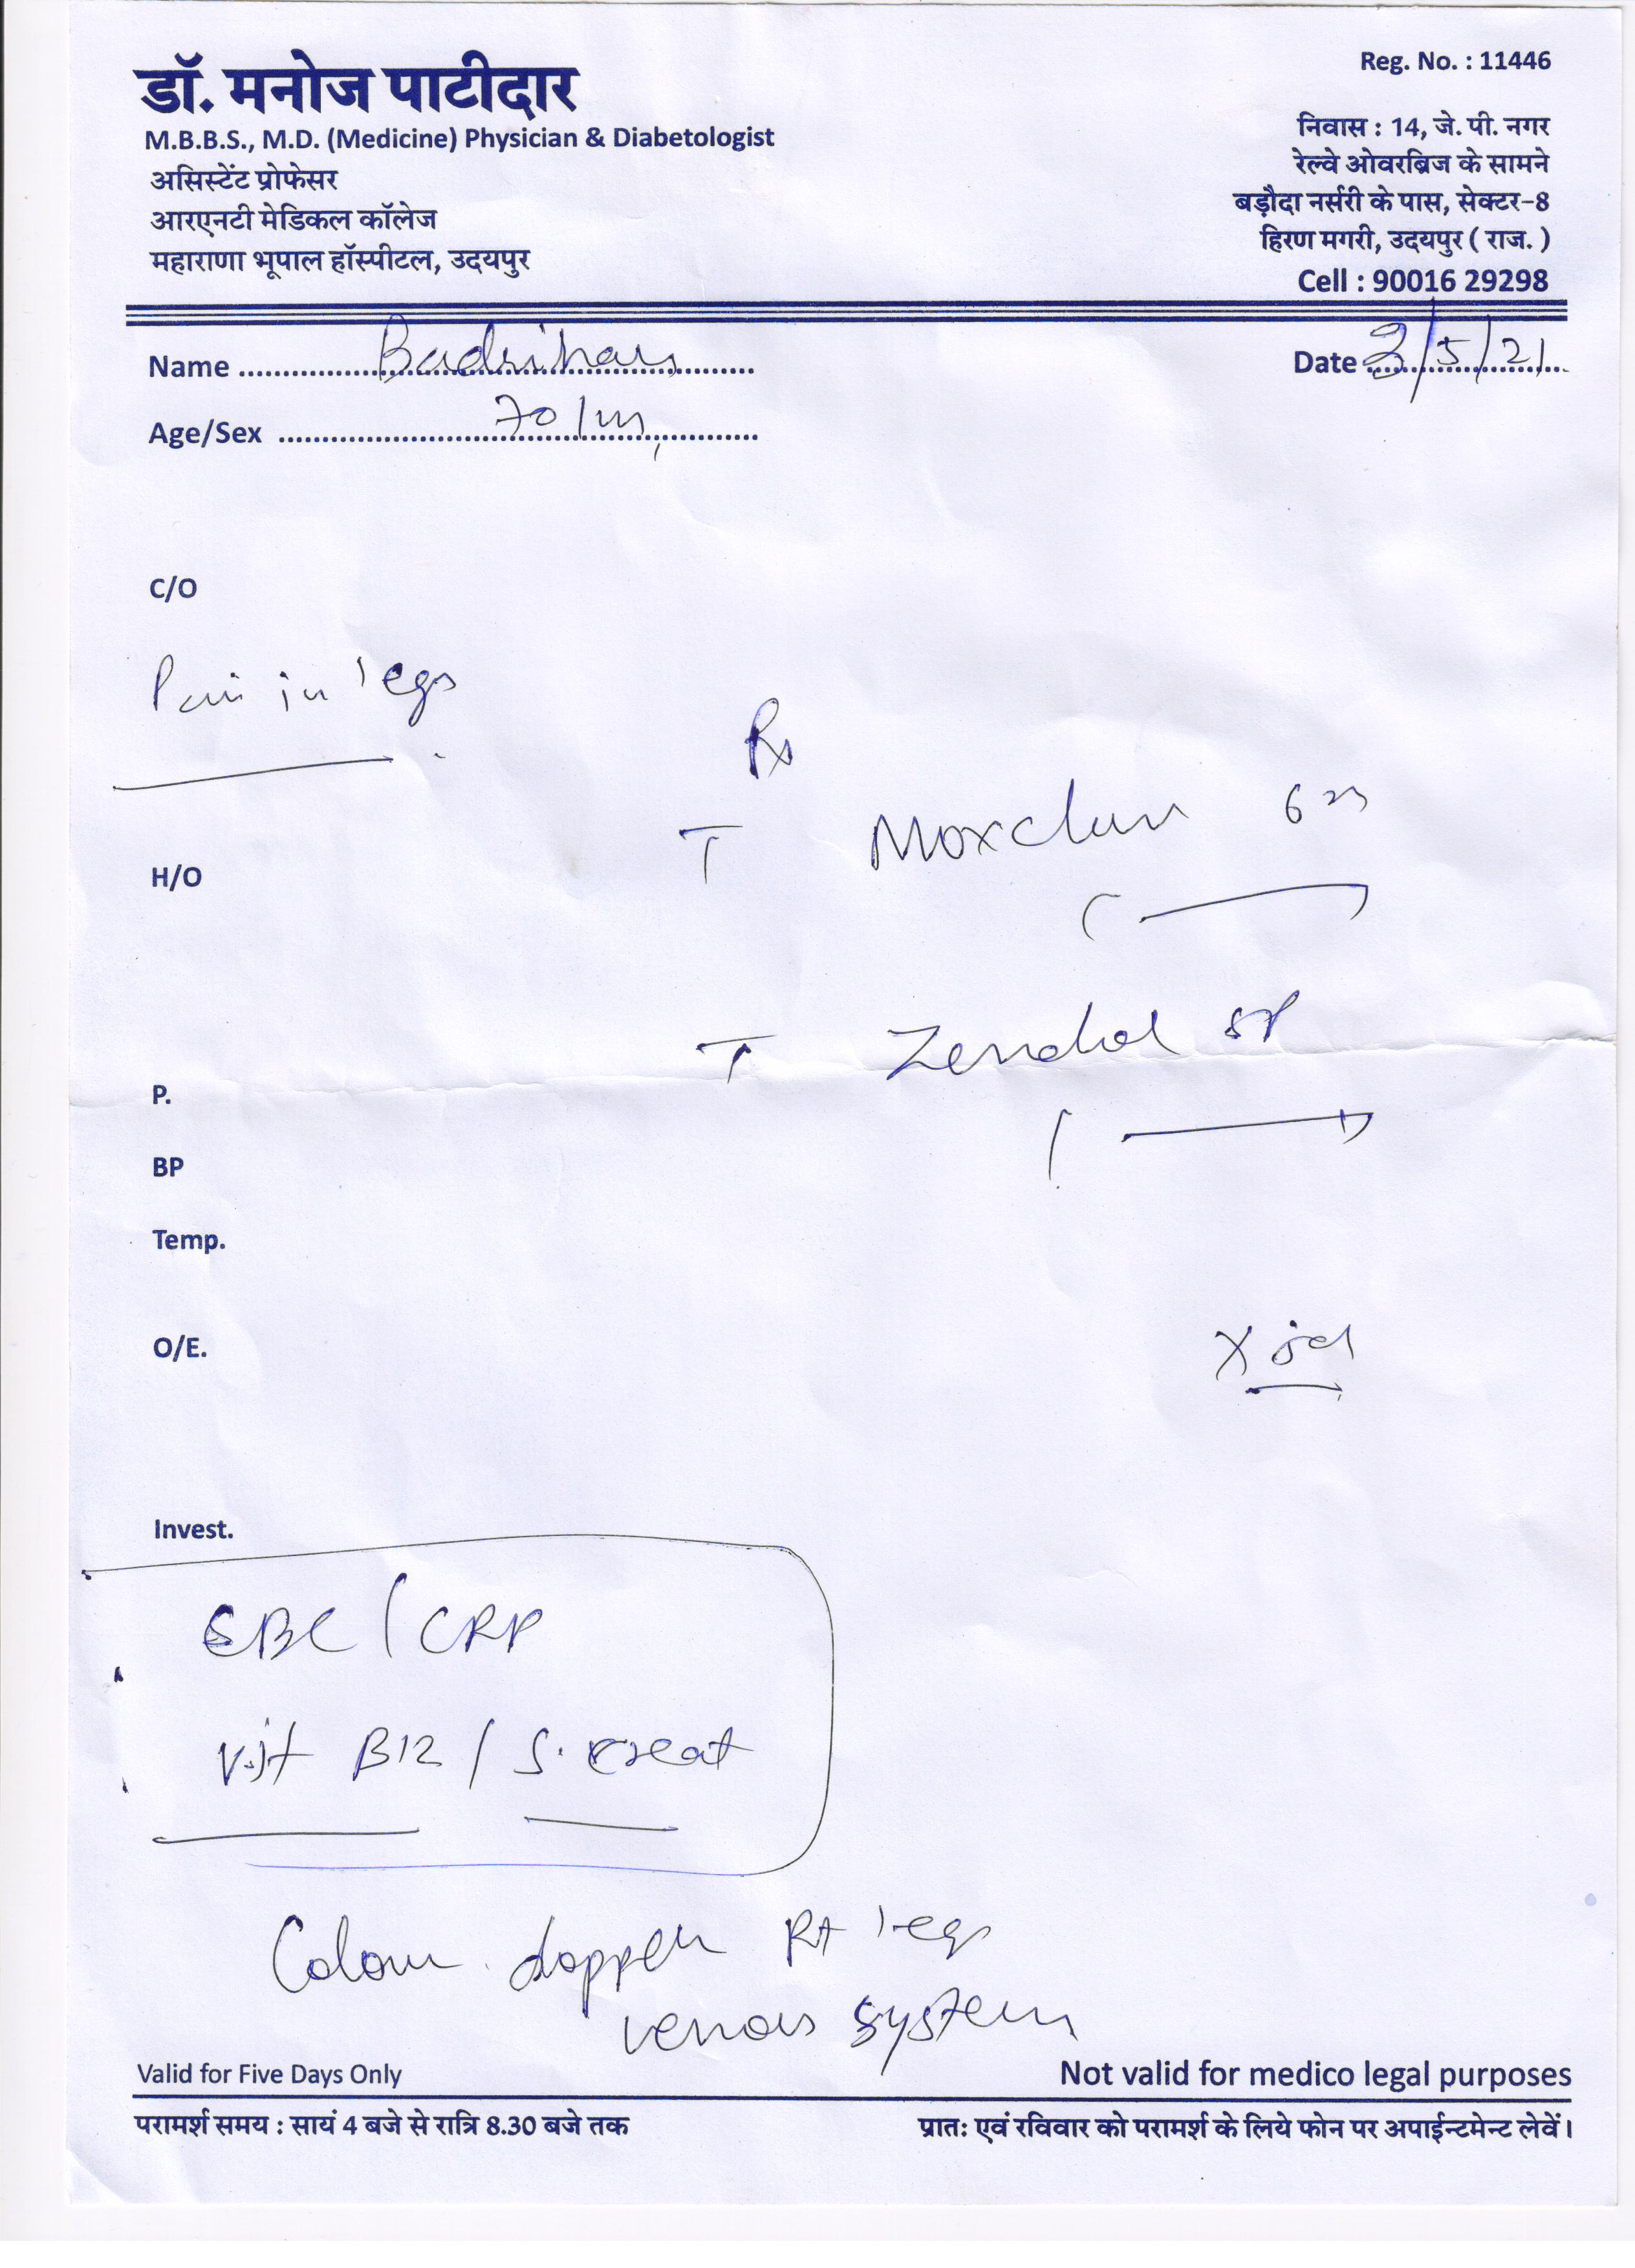 डॉ. मनोज पाटीदार
M.B.B.S., M.D. (Medicine) Physician & Diabetologist
असिस्टेंट प्रोफेसर
आरएनटी मेडिकल कॉलेज
महाराणा भूपाल हॉस्पीटल, उदयपुर
Reg. No. : 11446
निवास : 14, जे. पी. नगर
रेल्वे ओवरब्रिज के सामने
बड़ौदा नर्सरी के पास, सेक्टर-8
हिरण मगरी, उदयपुर ( राज. )
Cell : 90016 29298
Name
Date /5/21
Age/Sex 70/m
C/O
Pain in legs
Rx
T Moxclav 625
H/O
T SP
P.
BP
Temp.
O/E.
X 5d
Invest.
CBC / CRP
Vit B12 / S. creat
Colour doppler Rt legs
venous system
Valid for Five Days Only
Not valid for medico legal purposes
परामर्श समय : सायं 4 बजे से रात्रि 8.30 बजे तक
प्रातः एवं रविवार को परामर्श के लिये फोन पर अपाईन्टमेन्ट लेवें।